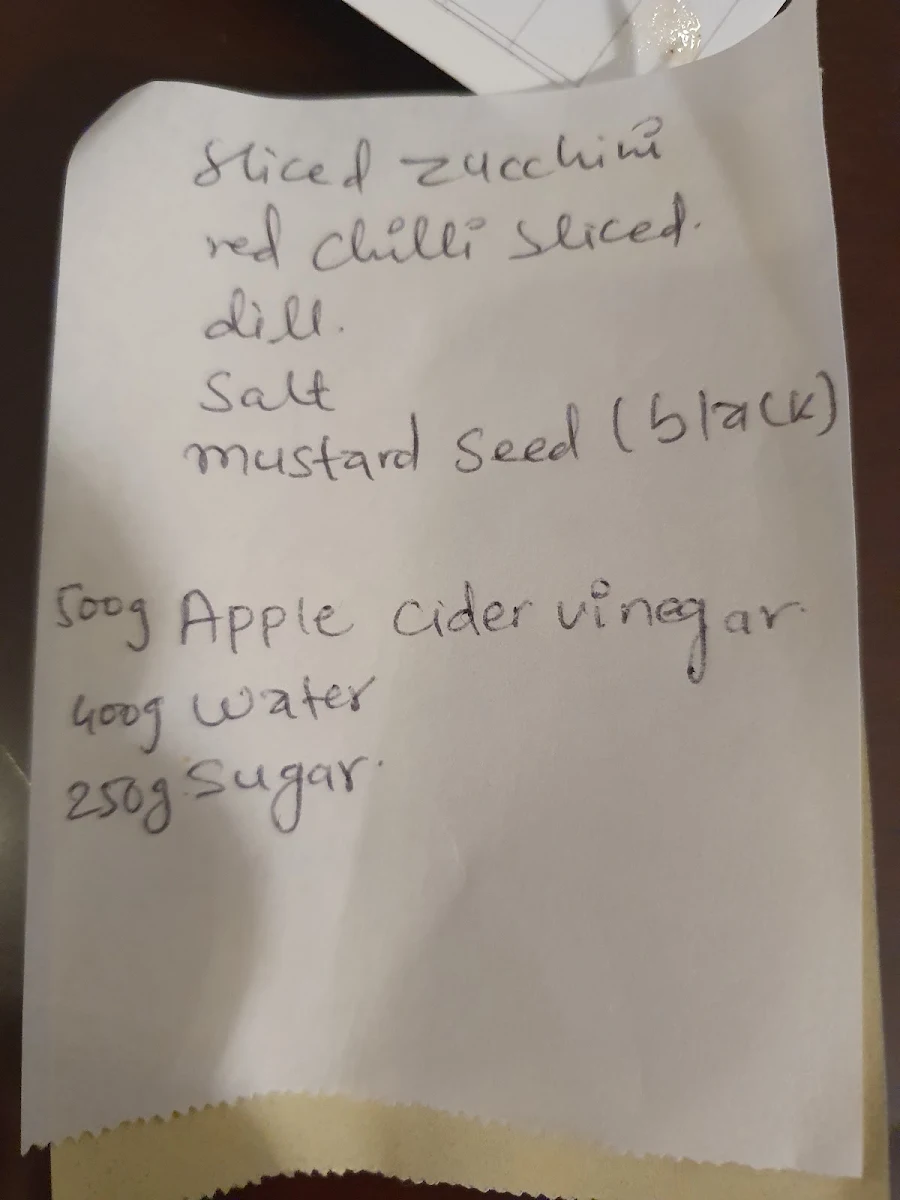 Sliced zucchini
red chilli sliced.
dill.
Salt
mustard seed (black)
500g Apple cider vinegar.
400g water
250g Sugar.